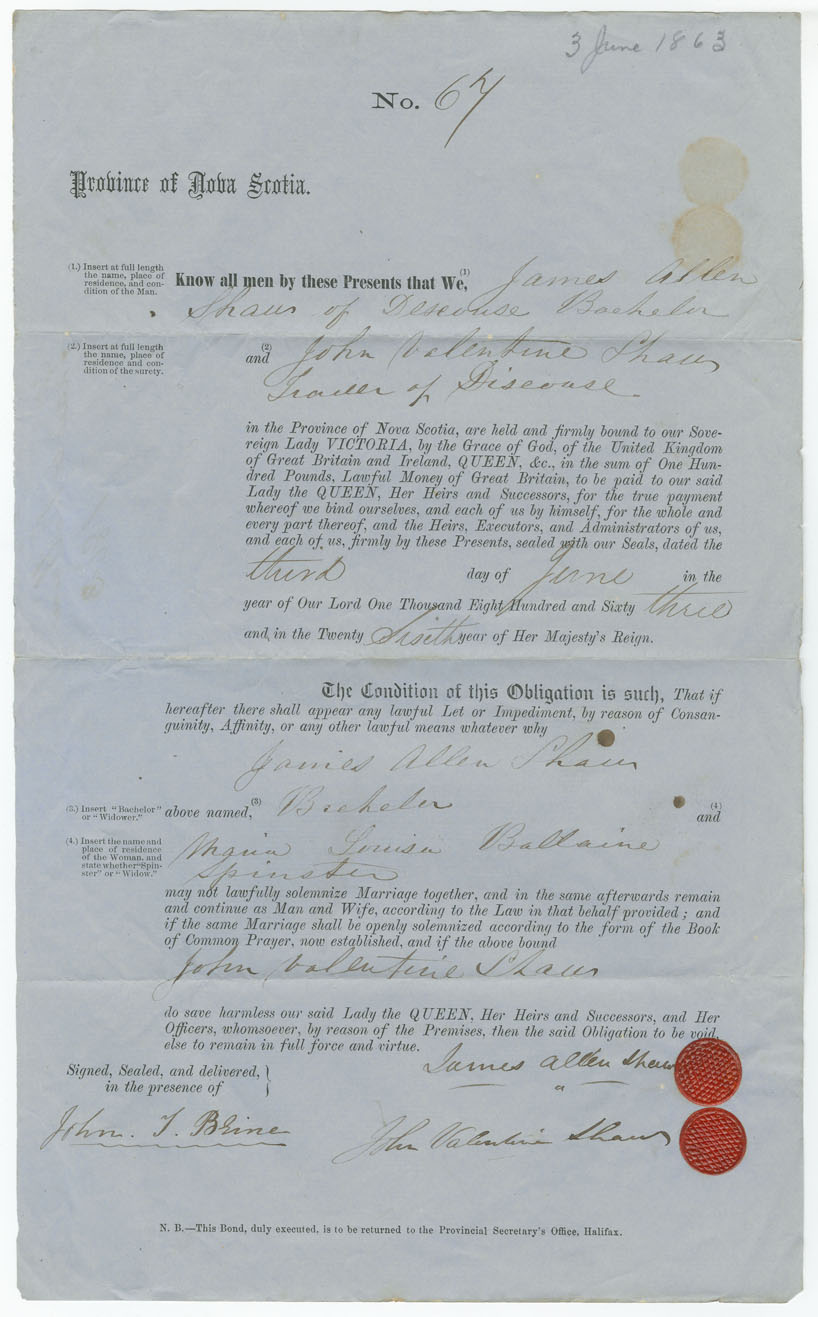 3 June 1863
No. 67
Province of Nova Scotia.
(1.) Insert at full length
the name, place of
residence, and con-
dition of the Man.
Know all men by these Presents that We,(1) James Allen
Shaw of Descouse Bachelor
(2.) Insert at full length
the name, place of
residence and con-
dition of the surety.
and (2) John Valentine Shaw
Trader of Discouse
in the Province of Nova Scotia, are held and firmly bound to our Sove-
reign Lady VICTORIA, by the Grace of God, of the United Kingdom
of Great Britain and Ireland, QUEEN, &c., in the sum of One Hun-
dred Pounds, Lawful Money of Great Britain, to be paid to our said
Lady the QUEEN, Her Heirs and Successors, for the true payment
whereof we bind ourselves, and each of us by himself, for the whole and
every part thereof, and the Heirs, Executors, and Administrators of us,
and each of us, firmly by these Presents, sealed with our Seals, dated the
third day of June in the
year of Our Lord One Thousand Eight Hundred and Sixty three
and, in the Twenty Sisith year of Her Majesty's Reign.
The Condition of this Obligation is such, That if
hereafter there shall appear any lawful Let or Impediment, by reason of Consan-
guinity, Affinity, or any other lawful means whatever why
James Allen Shaw
(3.) Insert "Bachelor"
or "Widower."
above named,(3) Bachelor (4) and
(4.) Insert the name and
place of residence
of the Woman, and
state whether "Spin-
ster" or "Widow."
Maria Louisa Ballaine
Spinster
may not lawfully solemnize Marriage together, and in the same afterwards remain
and continue as Man and Wife, according to the Law in that behalf provided; and
if the same Marriage shall be openly solemnized according to the form of the Book
of Common Prayer, now established, and if the above bound
John Valentine Shaw
do save harmless our said Lady the QUEEN, Her Heirs and Successors, and Her
Officers, whomsoever, by reason of the Premises, then the said Obligation to be void,
else to remain in full force and virtue.
James Allen Shaw
Signed, Sealed, and delivered,
in the presence of
John. T. Brine
John Valentine Shaw
N. B.—This Bond, duly executed, is to be returned to the Provincial Secretary's Office, Halifax.